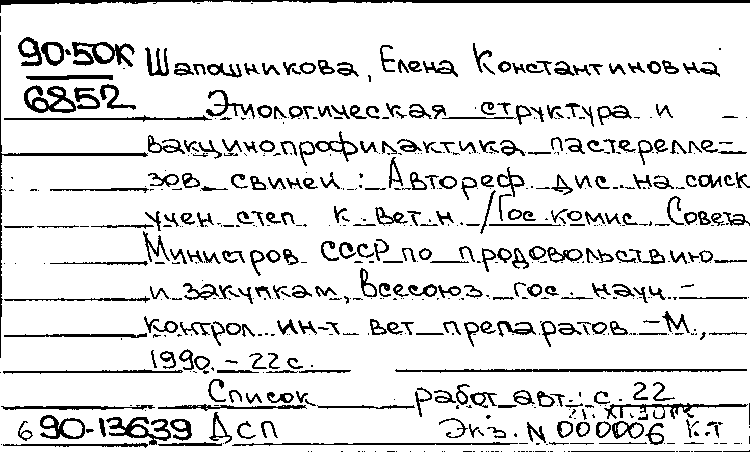 90-50К Шапошникова, Елена Константиновна
6852 Этиологическая структура и
вакцинопрофилактика пастерелле-
зов свиней: Автореф. дис. на соиск
учен степ к. вет. н. /Гос. комис. Совета
Министров СССР по продовольствию
и закупкам, Всесоюз. гос. науч-
контрол. ин-т вет препаратов -М.,
1990. - 22 с.
Список работ авт.: с. 22
6 90-13639 ДСП Экз. N 000006 К.Т